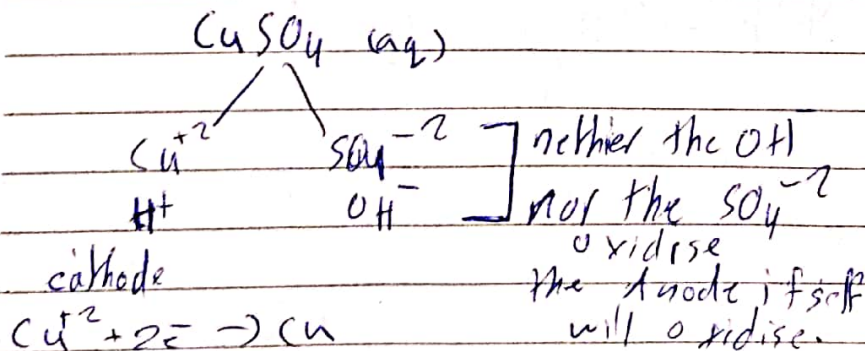 CuSO₄ (aq)
Cu⁺² SO₄⁻² ] nethier the OH⁻
H⁺ OH⁻ nor the SO₄⁻²
oxidise
cathode the Anode itself
Cu⁺² + 2e̅ → Cu will oxidise.